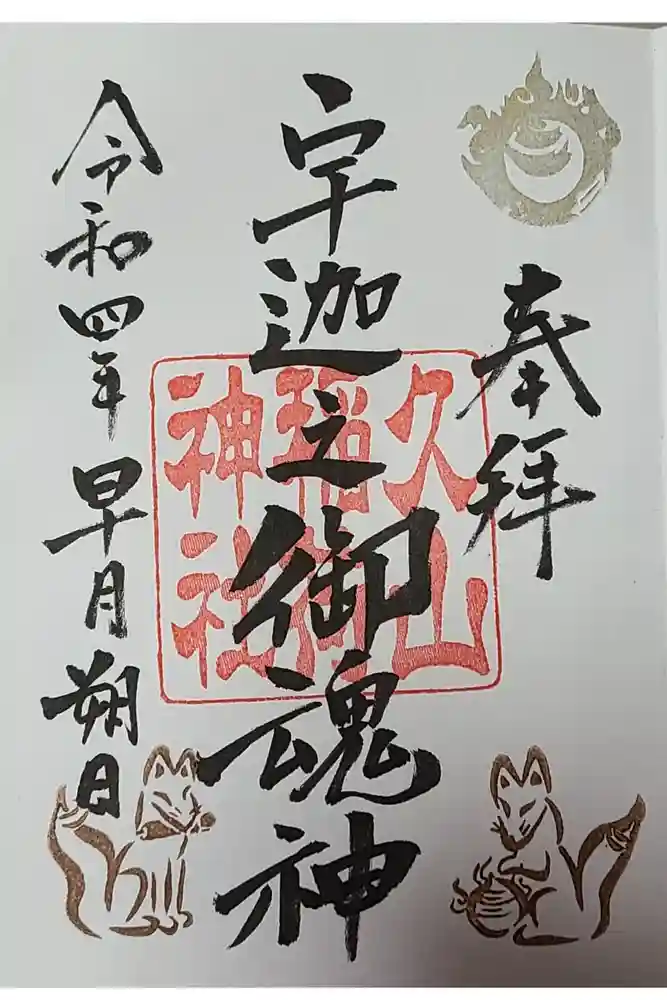 奉拝
宇迦之御魂神
令和四年 早月朔日
久山
稲荷
神社